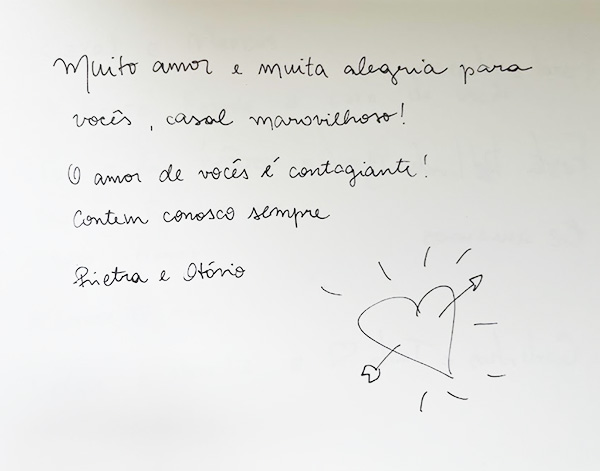 Muito amor e muita alegria para
vocês, casal maravilhoso!
O amor de vocês é contagiante!
Contem conosco sempre
Prietra e Otávio